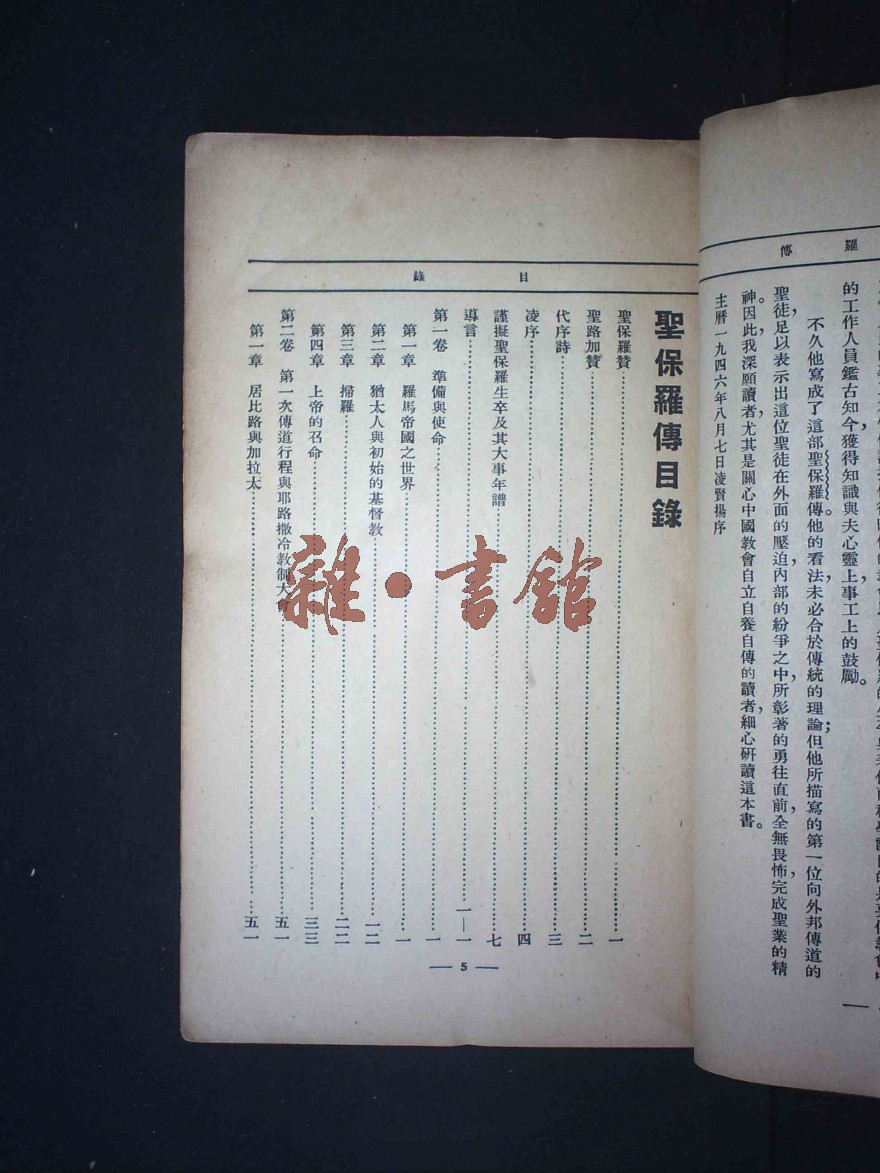 羅傳
的工作人員鑑古知今，獲得知識與夫心靈上事工上的鼓勵。
不久他寫成了這部聖保羅傳。他的看法未必合於傳統的理論；但他所描寫的第一位向外邦傳道的
聖徒，足以表示出這位聖徒在外面的壓迫，內部的紛爭之中，所彰著的勇往直前，全無畏怖，完成聖業的精
神。因此，我深願讀者，尤其是關心中國教會自立自養自傳的讀者，細心研讀這本書。
主曆一九四六年八月七日凌賢揚序
目錄
聖保羅傳目錄
聖保羅贊……一
聖路加贊……二
代序詩……三
凌序……四
謹擬聖保羅生卒及其大事年譜……七
導言……一—一
第一卷 準備與使命……一
第一章 羅馬帝國之世界……一
第二章 猶太人與初始的基督教……一二
第三章 掃羅……二二
第四章 上帝的召命……三三
第二卷 第一次傳道行程與耶路撒冷教制大會……五一
第一章 居比路與加拉太……五一
— 5 —
雜·書館